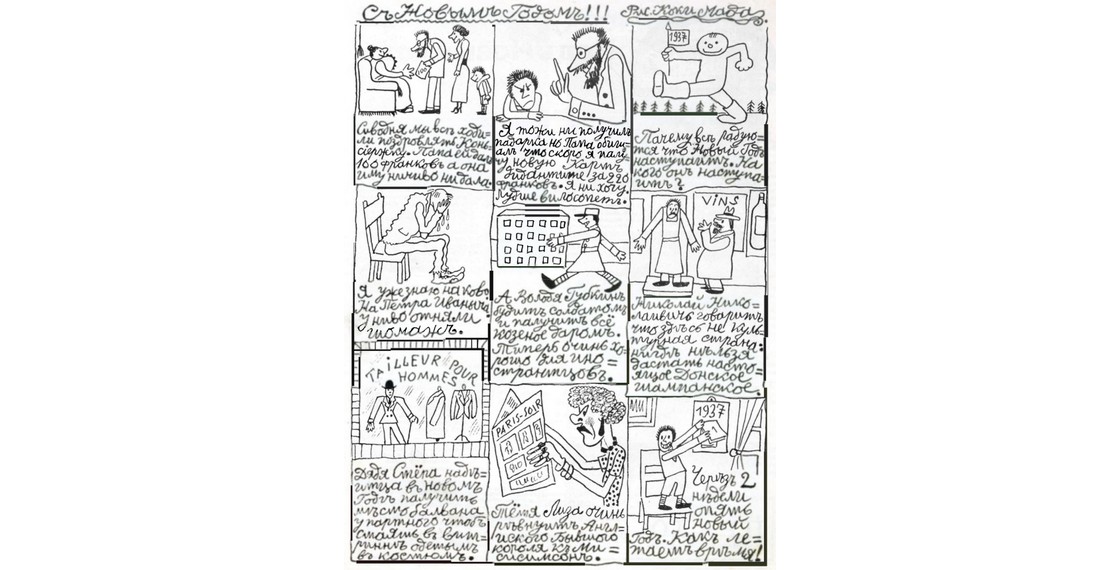 Съ Новымъ Годомъ!!! Рис. Коки Мада.
1937
Севодня мы всѣ ходи=
ли поздровлять Конь=
сіержку. Папа ей далъ
100 франковъ а она
иму ничиво ни дала.
Я тожи ни получилъ
падарка но Папа обищи=
алъ что скоро я палу=
чу новую Картъ
дидантите за 220
франковъ. Я ни хочу.
Лудше вилосопетъ.
Пачему всѣ радую=
тся что Новый Годъ
наступаитъ. На
кого онъ наступа=
итъ?
Я уже знаю на ково
На Петра Иваныча
у ниво отняли
шомажъ.
А Володя Губкинъ
будитъ солдатомъ
и палучитъ всё
козеное даромъ.
Типерь очинь хо=
рошо для ино=
странтцовъ.
VINS
Николай Нико=
лаивичъ говоритъ
что здѣсь не куль=
турная страна:
нигдѣ нильзя
достать насто=
ящое Донское
шампанское.
TAILLEUR POUR
HOMMES
Дядя Стёпа надѣ=
итца въ новомъ
Годѣ палучить
мѣсто болвана
у партного чтобъ
стаять въ вит=
ринѣ одетымъ
въ костюмъ.
PARIS-SOIR
Тётя Лиза очинь
рѣвнуитъ Англ=
искаго Бывшого
короля къ Ми=
сисимсонъ.
1937
1
Черезъ 2
нѣдѣли
опять
новый
Годъ. Какъ ле=
таетъ врѣмя!